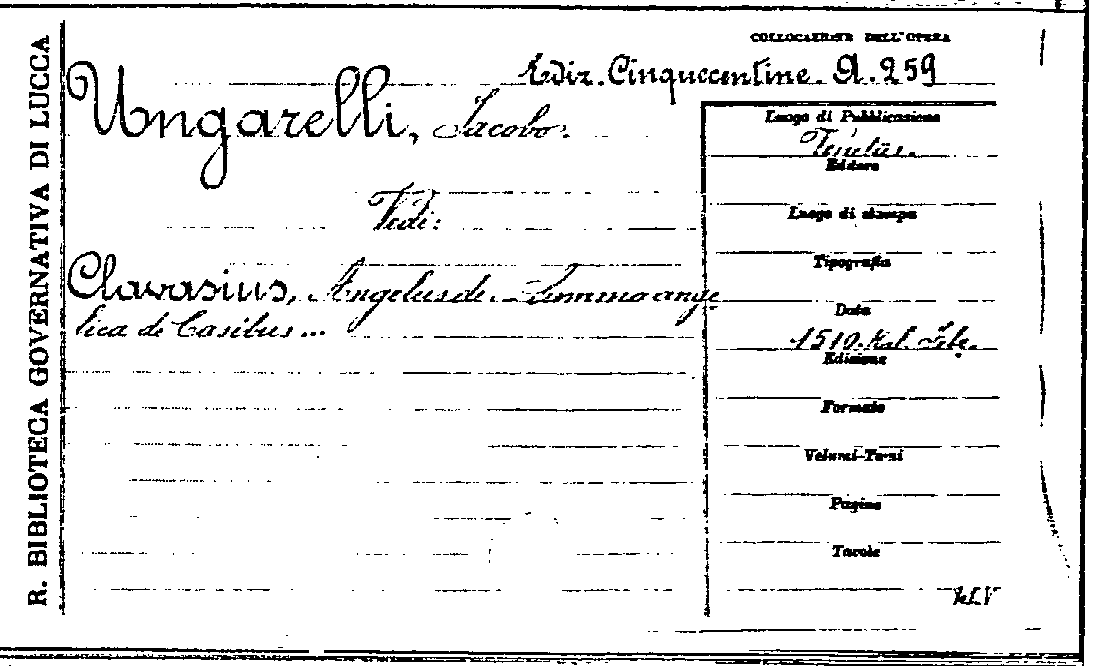 R. BIBLIOTECA GOVERNATIVA DI LUCCA
COLLOCAZIONE DELL'OPERA
Ediz. Cinquecentine. A. 259
Ungarelli, Jacobo.
Vedi:
Clavasius, Angelus de. Summa ange
lica de Casibus...
Luogo di Pubblicazione
Venetiis.
Editore
Luogo di stampa
Tipografia
Data
1510. Kal. Feb.
Edizione
Formato
Volumi-Tomi
Pagine
Tavole